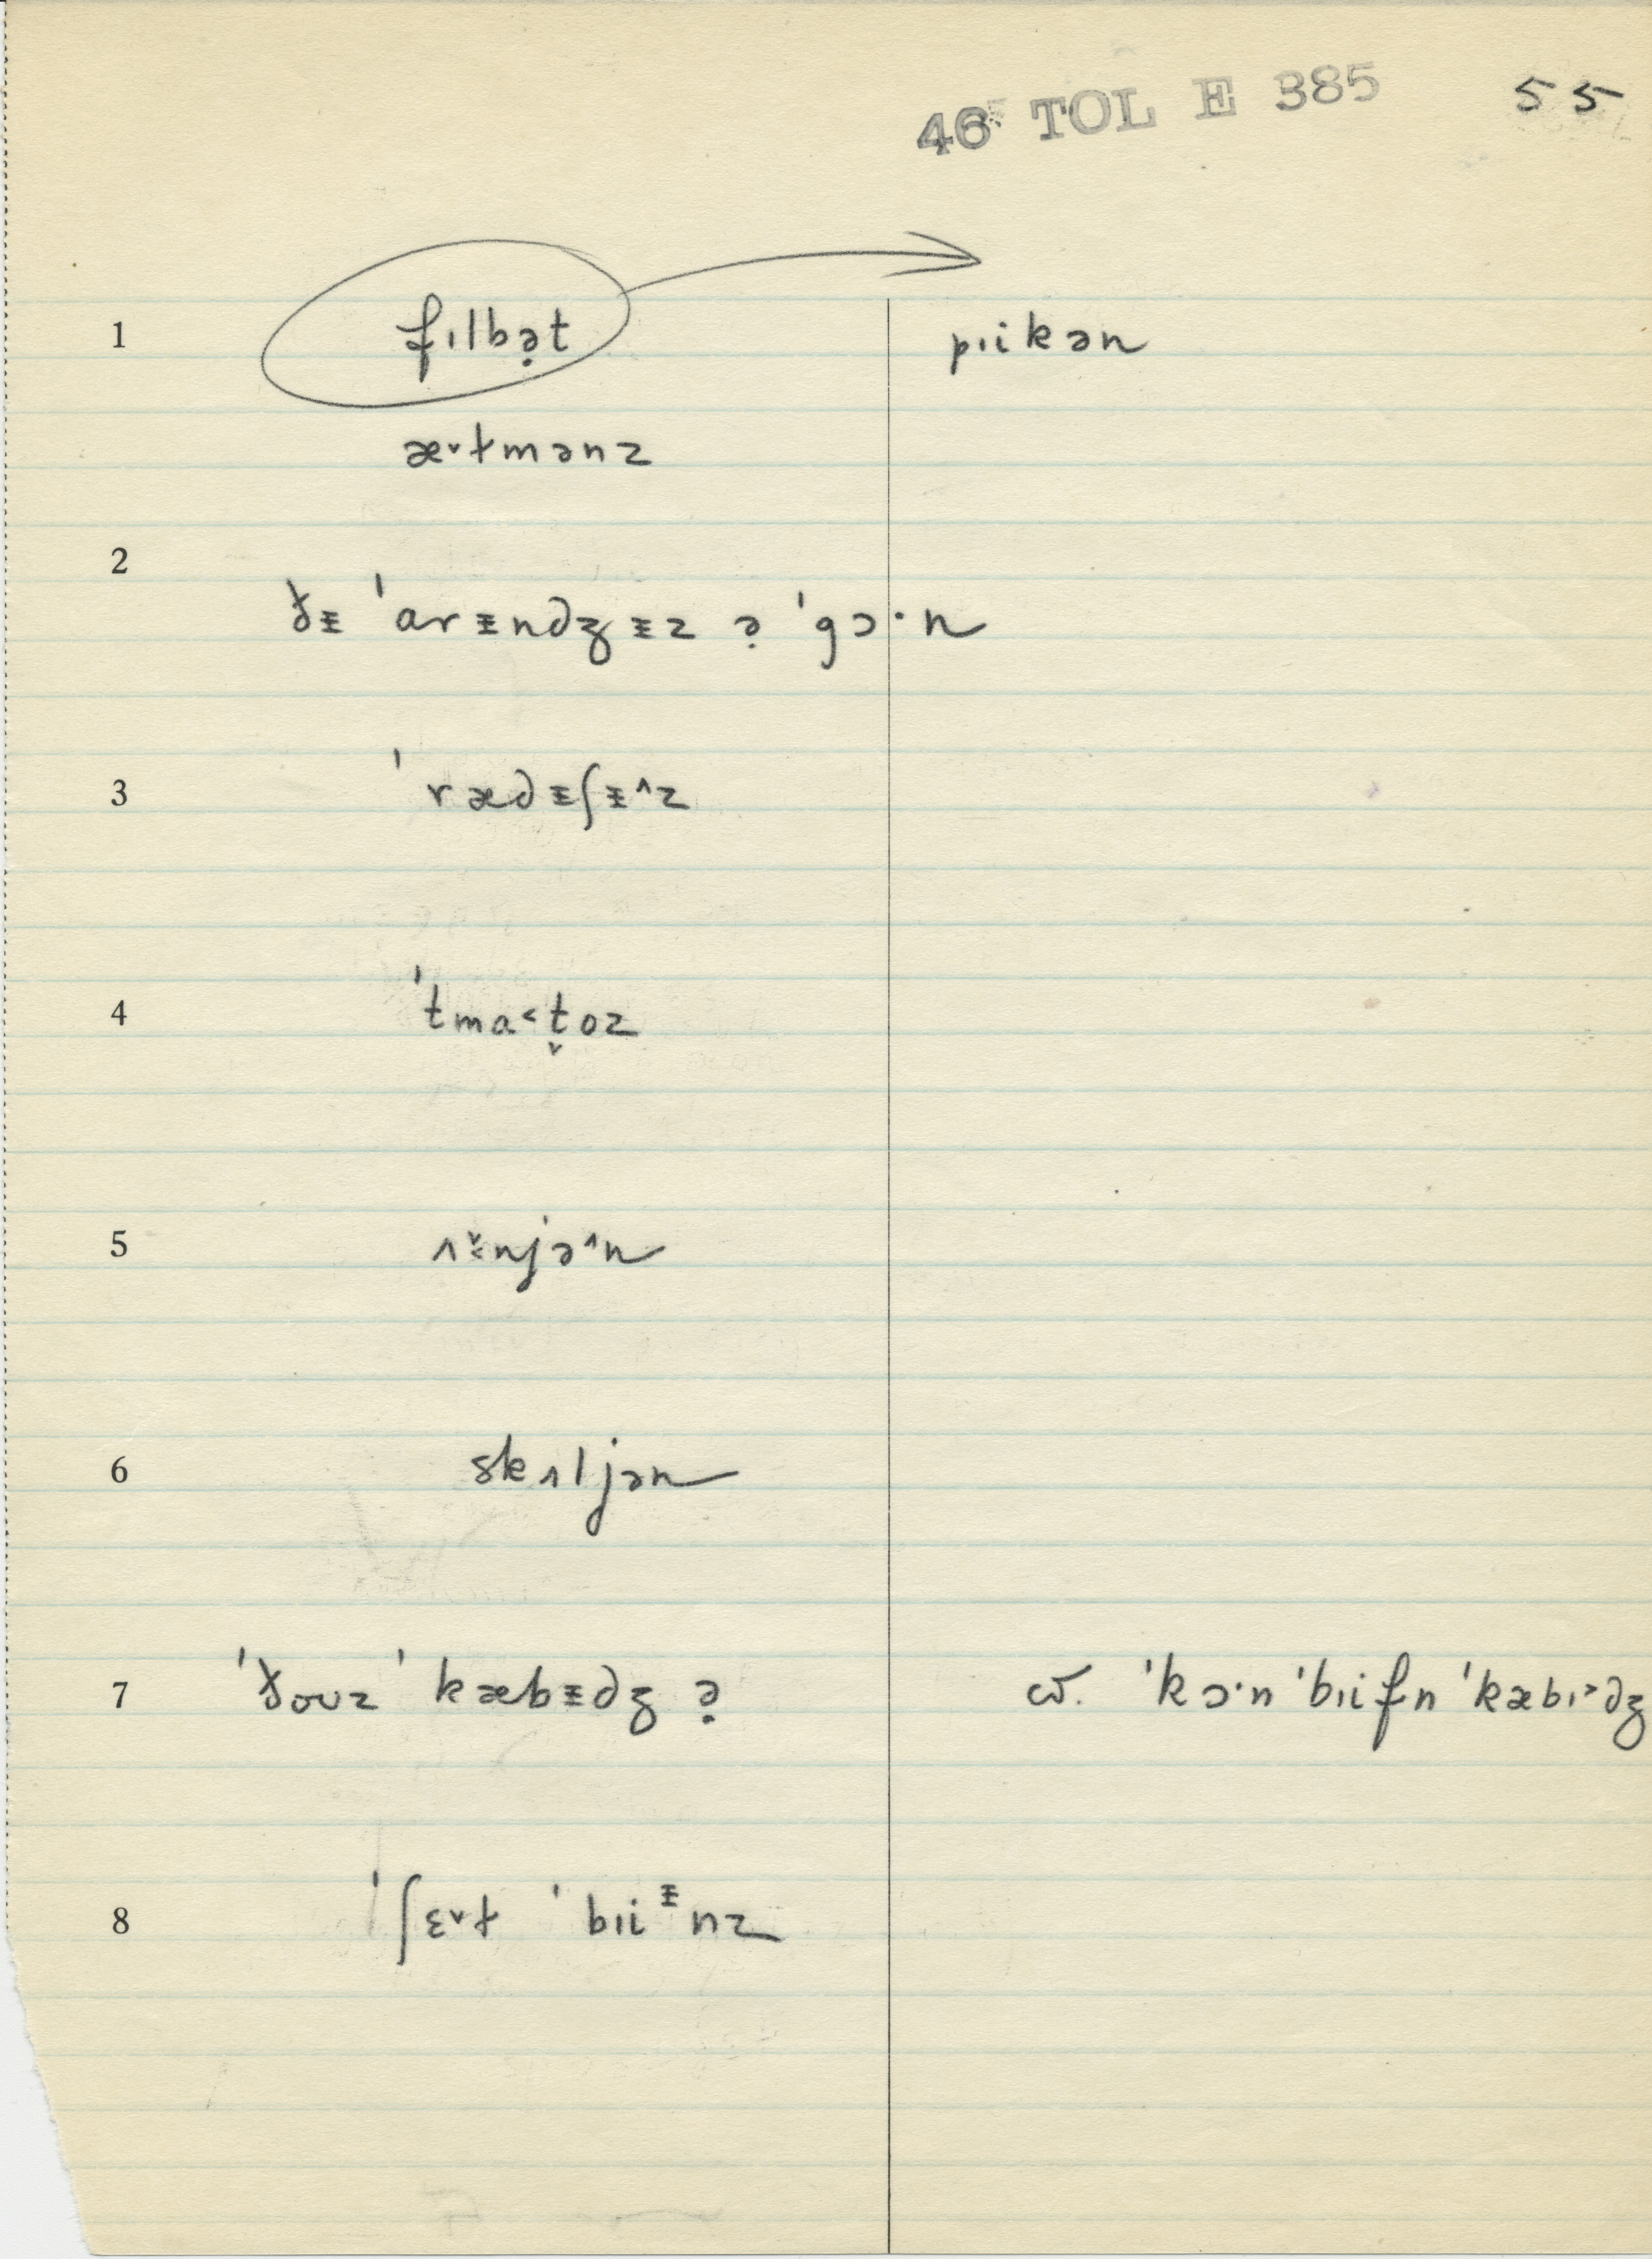 46 TOL E 385 55
1 fɪlbə̣t pɪikən
æ˅ɫmənz
2 ðᵻ ˈarᵻndʒᵻz ə̣ ˈgɔ·n
3 ˈrædᵻʃᵻ˄z
4 ˈtma˂t̬oz
5 ʌ̆˂njə˄n
6 skʌljən
7 ˈðouz ˈkæbᵻdʒ ə̣ cv̄. ˈkɔ·n ˈbɪifn ˈkæbɪ˃dʒ
8 ˈʃɛ˅ɫ ˈbɪiᵻnz